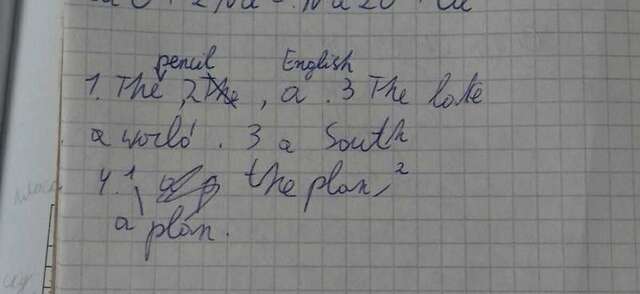 pencil English
1. The , 2 The , a . 3 The lake
a world . 3 a South
4. 1 the plan, 2
a plan.